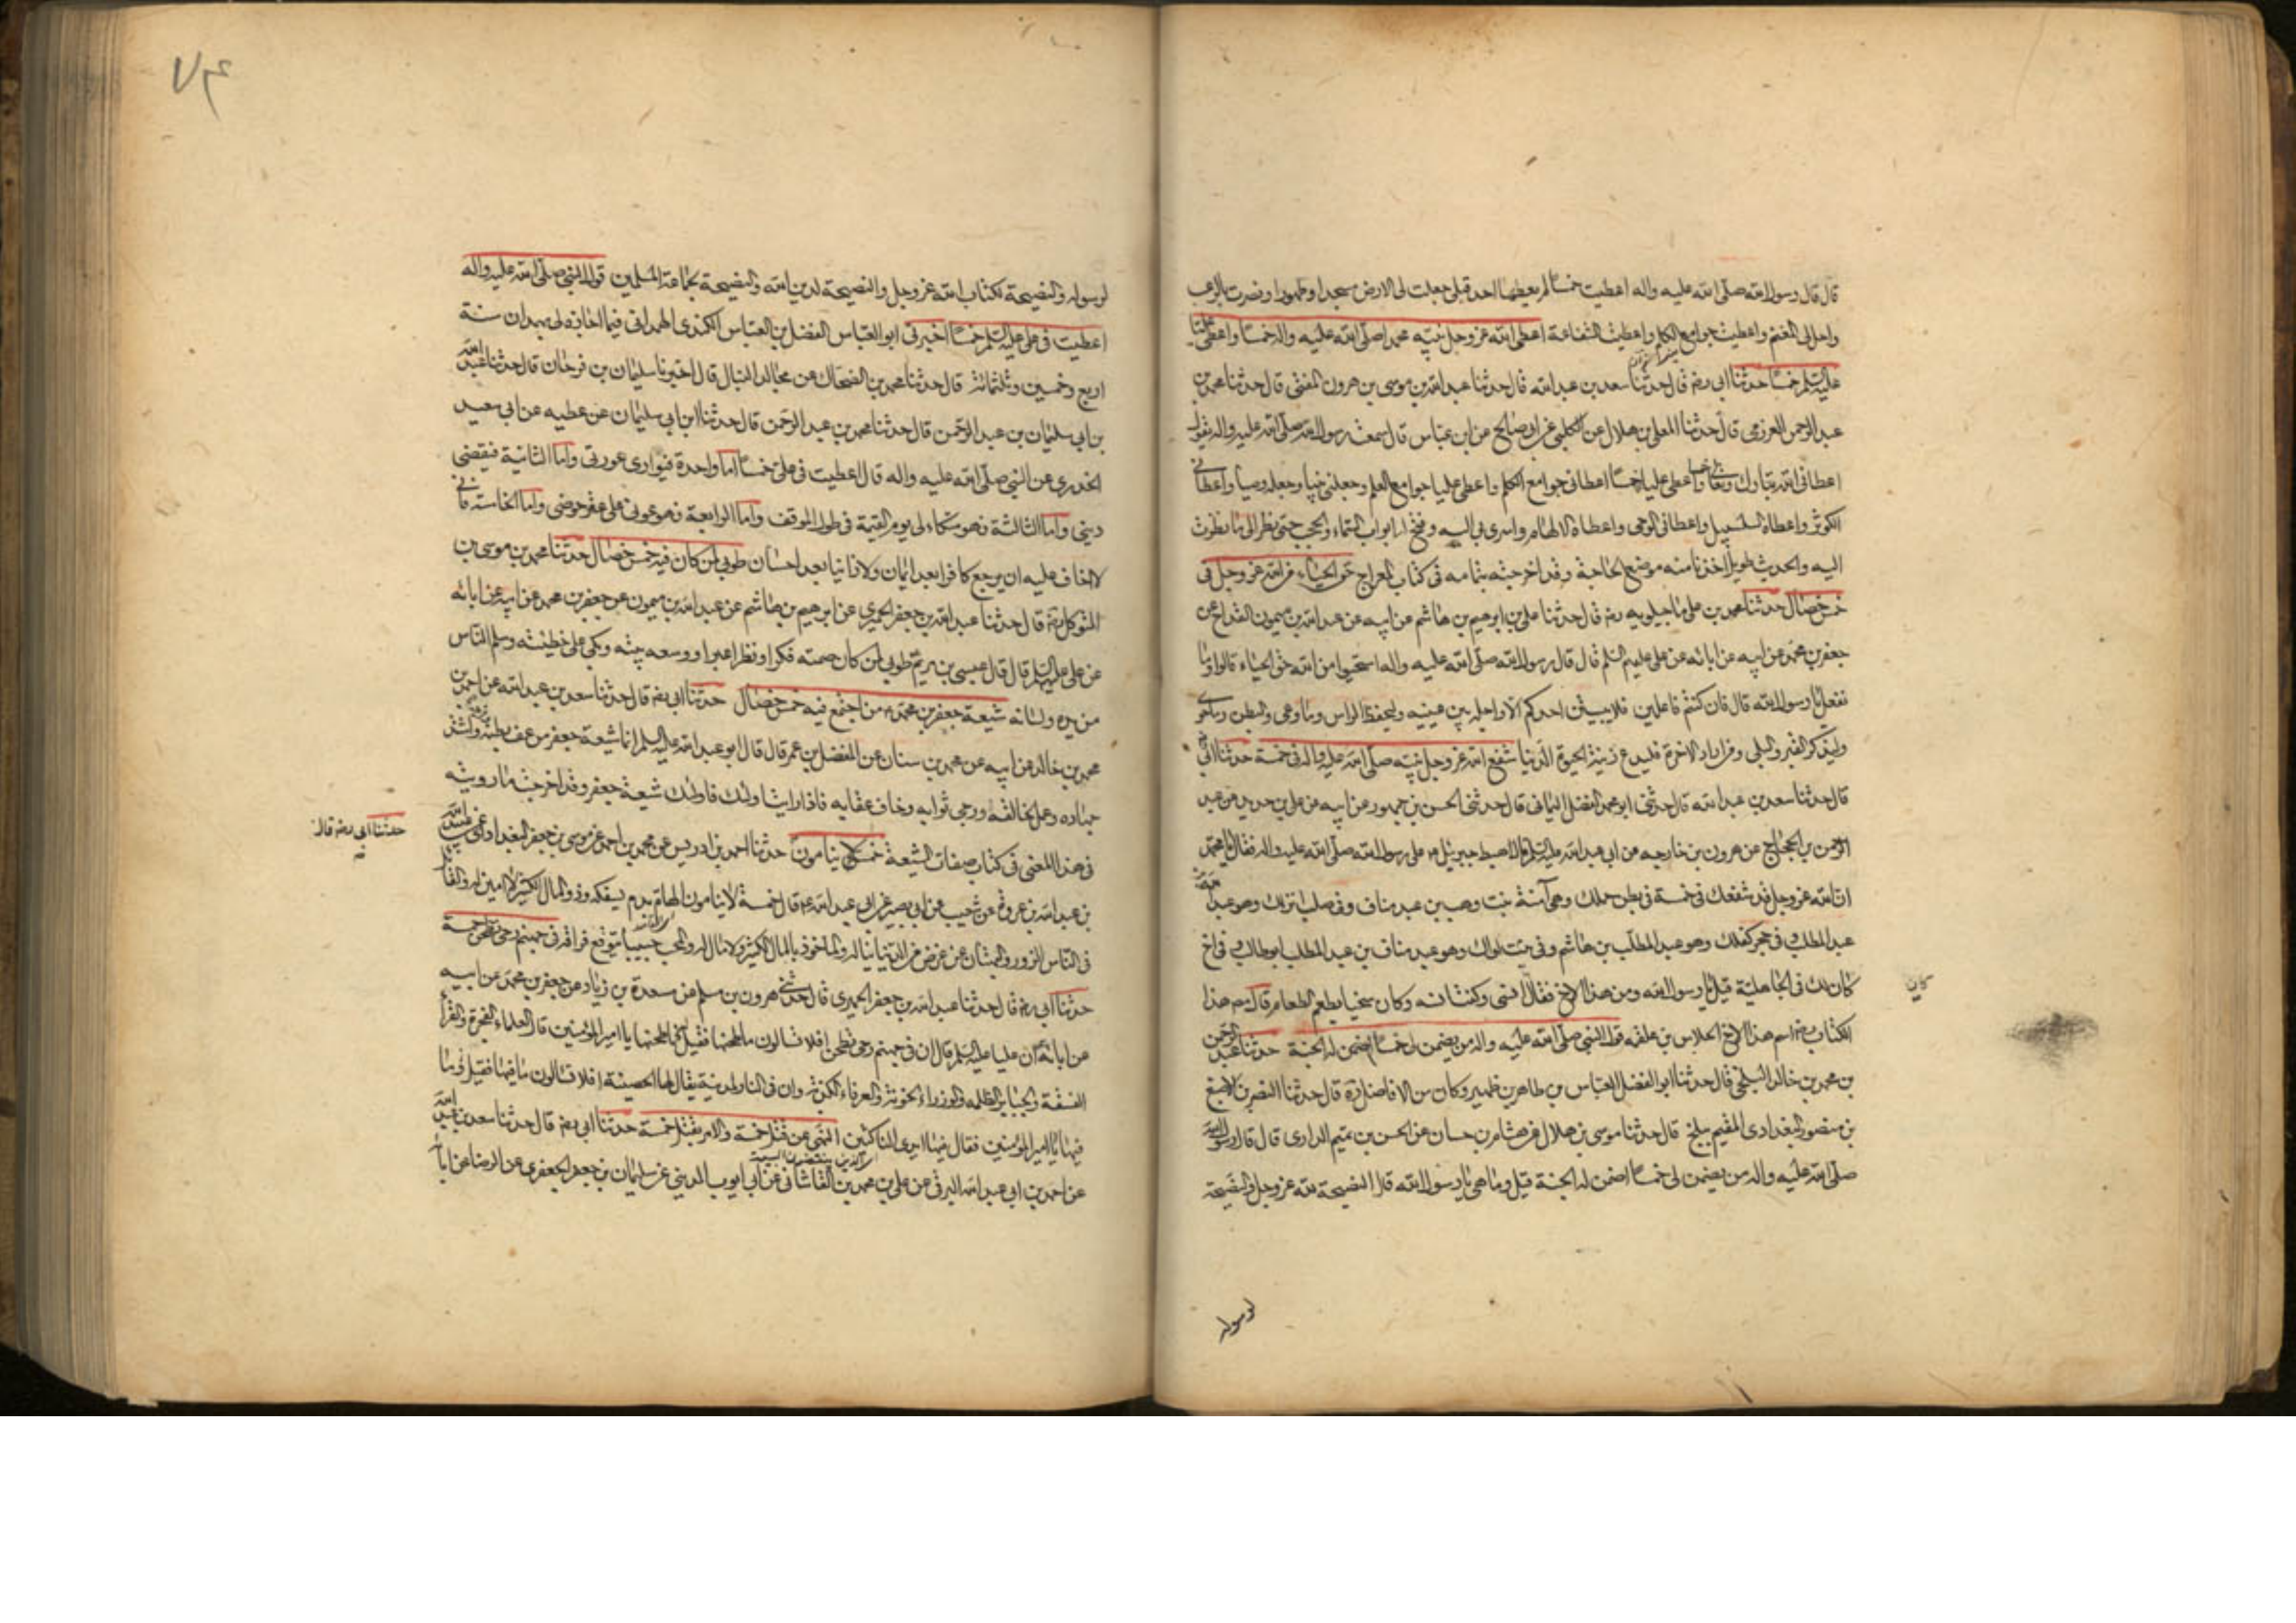 قال قال رسول الله صلى الله عليه واله اعطيت خمسا لم يعطها احد قبلى جعلت لى الارض مسجدا وطهورا ونصرت بالرعب
واحل لى المغنم واعطيت جوامع الكلم واعطيت الشفاعة اعطى الله عز وجل نبيه محمدا صلى الله عليه واله خمسا واعطى عليا
عليه السلم خمسا حدثنا ابى رضه قال حدثنا سعد بن عبد الله قال حدثنا عبد الله بن موسى بن هرون المفتى قال حدثنا محمد بن
عبد الرحمن العرزمى قال حدثنا المعلى بن هلال عن الكلبى عن ابى صالح عن ابن عباس قال سمعت رسول الله صلى الله عليه واله يقول
اعطانى الله تبارك وتعالى خمسا واعطى عليا خمسا اعطانى جوامع الكلم واعطى عليا جوامع العلم وجعلنى نبيا وجعله وصيا واعطانى
الكوثر واعطاه السلسبيل واعطانى الوحى واعطاه الالهام واسرى بى اليه وفتح له ابواب السماء والحجب حتى نظر الى ما نظرت
اليه والحديث طويل اخذنا منه موضع الحاجة وقد اخرجته بتمامه فى كتاب المعراج حق الحياء من الله عز وجل فى
خمس خصال حدثنا محمد بن على ماجيلويه رضه قال حدثنا على بن ابرهيم بن هاشم عن ابيه عن عبد الله بن ميمون القداح عن
جعفر بن محمد عن ابيه عن ابائه عن على عليهم السلم قال قال رسول الله صلى الله عليه واله استحيوا من الله حق الحياء قالوا وما
نفعل يا رسول الله قال فان كنتم فاعلين فلا يبيتن احدكم الا واجله بين عينيه وليحفظ الراس وما وعى والبطن وما حوى
وليذكر القبر والبلى ومن اراد الاخرة فليدع زينة الحيوة الدنيا شفع الله عز وجل نبيه صلى الله عليه واله فى خمسة حدثنا ابى رضه
قال حدثنا سعد بن عبد الله قال حدثنى ابو محمد الفضل اليمانى قال حدثنى الحسن بن جمهور عن ابيه عن على بن حديد عن عبد
الرحمن بن الحجاج عن هرون بن خارجه عن ابى عبد الله عليه السلم قال هبط جبرئيل ع على رسول الله صلى الله عليه واله فقال يا محمد
ان الله عز وجل قد شفعك فى خمسة فى بطن حملك وهى آمنة بنت وهب بن عبد مناف وفى صلب انزلك وهو عبد الله بن
عبد المطلب وفى حجر كفلك وهو عبد المطلب بن هاشم وفى بيت اواك وهو عبد مناف بن عبد المطلب ابو طالب وفى اخ
كان لك فى الجاهلية قيل يا رسول الله ومن هذا الاخ فقال كان انسى وكنت انسه وكان سخيا يطعم الطعام قال مصنف هذا
كان
الكتاب رضه اسم هذا الاخ الجلاس بن علقمه قول النبى صلى الله عليه واله من يضمن لى خمسا اضمن له الجنة حدثنا عبد الرحمن
بن محمد بن خالد البلخى قال حدثنا ابو الفضل العباس بن طاهر بن ظهير وكان من الافاضل قال حدثنا النصر بن الاصبغ
بن منصور البغدادى المقيم ببلخ قال حدثنا موسى بن هلال عن هشام بن حسان عن الحسن بن تميم الدارى قال قال رسول الله
صلى الله عليه واله من يضمن لى خمسا اضمن له الجنة قيل وما هى يا رسول الله قال النصيحة لله عز وجل والنصيحة
لرسوله
لرسوله والنصيحة لكتاب الله عز وجل والنصيحة لدين الله والنصيحة لجماعة المسلمين قول النبى صلى الله عليه واله
اعطيت فى على عليه السلم خمسا اخبرنى ابو العباس الفضل بن الفضل بن العباس الكندى الهمدانى فيما اجازه لى بهمدان سنة
اربع وخمسين وثلثمائة قال حدثنا محمد بن الضحاك عن مجالد النبال قال اخبرنا سليمان بن فرحان قال حدثنا عبد الله
بن ابى سليمان بن عبد الرحمن قال حدثنا محمد بن عبد الرحمن قال حدثنا ابن ابى سليمان عن عطيه عن ابى سعيد
الخدرى عن النبى صلى الله عليه واله قال اعطيت فى على خمسا اما واحدة فيوارى عورتى واما الثانية فيقضى
دينى واما الثالثة فهو متكاء لى يوم القيمة فى طول الموقف واما الرابعة فهو عونى على عقر حوضى واما الخامسة فانى
لا اخاف عليه ان يرجع كافرا بعد ايمان ولا زانيا بعد احسان طوبى لمن كان فيه خمس خصال حدثنا محمد بن موسى بن
المتوكل رضه قال حدثنا عبد الله بن جعفر الحميرى عن ابرهيم بن هاشم عن عبد الله بن ميمون عن جعفر بن محمد عن ابيه عن ابائه
عن على عليهم السلم قال قال عيسى بن مريم ع طوبى لمن كان صمته فكرا ونظره عبرا ووسعه بيته وبكى على خطيئته وسلم الناس
من يده ولسانه شيعة جعفر بن محمد ع من اجتمع فيه خمس خصال حدثنا ابى رضه قال حدثنا سعد بن عبد الله عن احمد بن
محمد بن خالد عن ابيه عن محمد بن سنان عن المفضل بن عمر قال قال ابو عبد الله عليه السلم انما شيعة جعفر من عف بطنه وفرجه واشتد
جهاده وعمل لخالقه ورجى ثوابه وخاف عقابه فاذا رايت اولئك فاولئك شيعة جعفر وقد اخرجت ما رويته
فى هذا المعنى فى كتاب صفات الشيعة خمس لا ينامون حدثنا احمد بن ادريس عن محمد بن احمد عن موسى بن جعفر البغدادى عن عبيد الله
حدثنا ابى رضه قال
بن عبد الله بن عروة عن شعيب عن ابى بصير عن ابى عبد الله ع قال خمسة لا ينامون الهام بدم يسفكه وذو المال الكثير لا امين له والقائل
فى الناس الزور والبهتان عن عرض من الدنيا يناله والماخوذ بالمال الكثير ولا مال له والمحب حبيبا يتوقع فراقه فى جهنم رحى تطحن خمسة
حدثنا ابى رضه قال حدثنا عبد الله بن جعفر الحميرى قال حدثنى هرون بن مسلم عن مسعدة بن زياد عن جعفر بن محمد عن ابيه
عن ابائه ان عليا عليه السلم قال ان فى جهنم رحى تطحن افلا تسالون ما طحنها فقيل له فما طحنها يا امير المؤمنين قال العلماء الفجرة والقراء
الفسقة والجبابرة الظلمه والوزراء الخونة والعرفاء الكذبة وان فى النار لمدينة يقال لها الحصينة افلا تسالون ما فيها فقيل وما
فيها يا امير المؤمنين فقال فيها ايدى الناكثين النهى عن قتل خمسة والامر بقتل خمسة حدثنا ابى رضه قال حدثنا سعد بن عبد الله
عن احمد بن ابى عبد الله البرقى عن على بن محمد بن القاشانى عن ابى ايوب المدينى عن سليمان بن جعفر الجعفرى عن الرضا عن ابائه